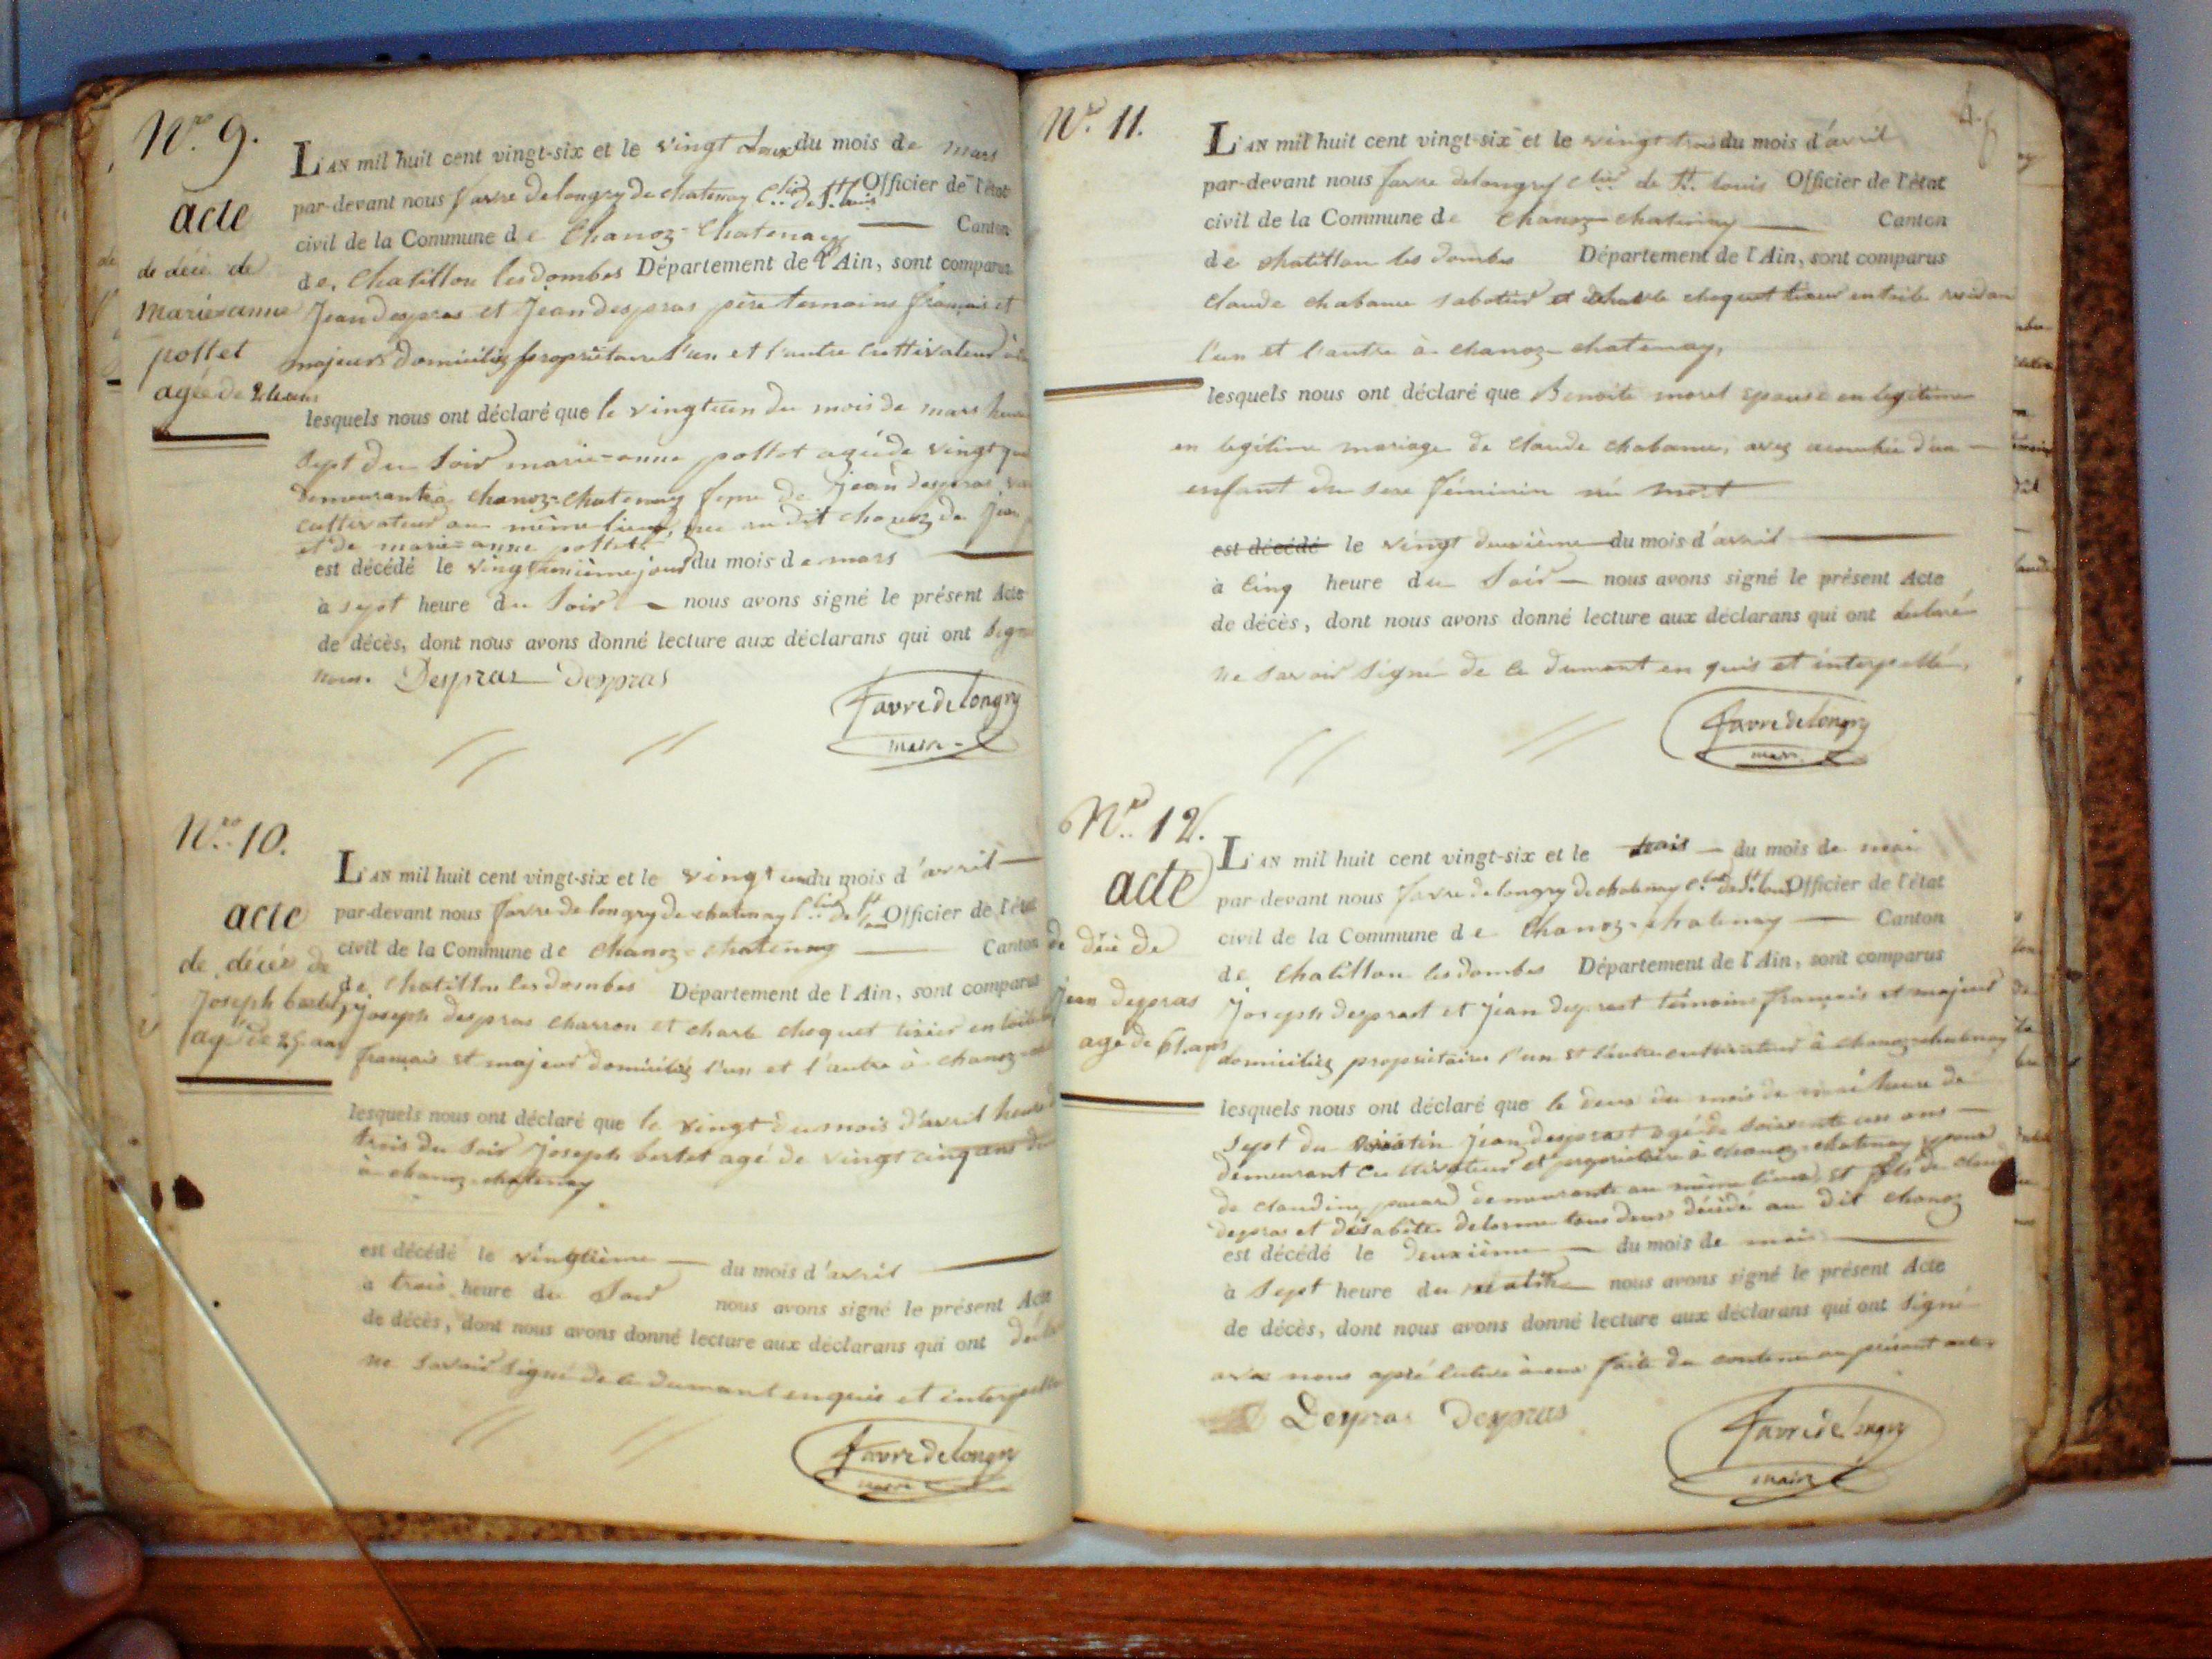 Nro 9.
acte
de décè de
Marie=anne
pollet
agée de
L'AN mil huit cent vingt-six et le vingt deux du mois de mars
par-devant nous favre de longry de chatenay Clier de St Louis Officier de l'état
civil de la Commune de Chanoz=Chatenay Canton
de Chatillon les dombes Département de l'Ain, sont comparus
Jean despras et Jean despras père temoins français et
majeurs domiciliez propriétaires l'un et l'autre cultivateur à
lesquels nous ont déclaré que le vingt un du mois de mars heure
sept du soir marie=anne pollet agée de vingt
demeurant à chanoz=chatenay feme de jean despras
cultivateur au même lieu, née au dit chanoz de Jean
et de marie=anne pollet
est décédé le vingt unième jour du mois de mars
à sept heure du soir nous avons signé le présent Acte
de décès, dont nous avons donné lecture aux déclarans qui ont signé
nous. Despras Despras
favre de longry
maire
Nro 10.
acte
de décée de
Joseph bertet
agé de 25 ans
L'AN mil huit cent vingt-six et le vingt un du mois d'avril
par-devant nous favre de longry de chatenay Clier de St Louis Officier de l'état
civil de la Commune de Chanoz=chatenay Canton
de Chatillon les dombes Département de l'Ain, sont comparus
joseph despras charron et charle choquet tisier en toile
français et majeur domiciliez l'un et l'autre à chanoz
lesquels nous ont déclaré que le vingt du mois d'avril heure de
trois du soir Joseph bertet agé de vingt cinq ans
à chanoz=chatenay
est décédé le vingtième du mois d'avril
à trois heure du soir nous avons signé le présent Acte
de décès, dont nous avons donné lecture aux déclarans qui ont déclaré
ne savoir signé de ce dumant enquis et interpellé
favre de longry
maire
Nro 11.
L'AN mil huit cent vingt-six et le vingt trois du mois d'avril
par-devant nous favre delongry Clier de St. Louis Officier de l'état
civil de la Commune de Chanoz=chatenay Canton
de chatillon les dombes Département de l'Ain, sont comparus
claude chabanu sabotier et charle choquet tisieur en toile residan
l'un et l'autre à chanoz=chatenay,
lesquels nous ont déclaré que Benoite morel epouse en legitime
en legitime mariage de claude chabanu, avez acouchée d'un
enfant du sexe féminin né mort
est décédé le vingt deuxième du mois d'avril
à cinq heure du soir nous avons signé le présent Acte
de décès, dont nous avons donné lecture aux déclarans qui ont declaré
ne savoir signé de ce dumant enquis et interpellé,
favre de longry
maire
Nro 12.
acte
de décè de
jean despras
agé de 61. ans
L'AN mil huit cent vingt-six et le trois du mois de mai
par-devant nous favre de longry de chatenay Clier de St Louis Officier de l'état
civil de la Commune de Chanoz=chatenay Canton
de Chatillon les dombes Département de l'Ain, sont comparus
Joseph desprast et jean desprast témoins français et majeur
domiciliez propriétaires l'un et l'autre cultivateur à chanoz=chatenay
lesquels nous ont déclaré que le deux du mois de mai heure de
sept du matin jean desprast agé de soixante un ans
demeurant cultivateur et propriétaire à chanoz=chatenay epoux
de claudine demeurante au même lieux et fils de claude
despras et délorme tous deux décédé au dit chanoz
est décédé le deuxième du mois de mai
à sept heure du matin nous avons signé le présent Acte
de décès, dont nous avons donné lecture aux déclarans qui ont signé
avec nous après lecture à eux faite du contenu au présent acte
Despras Despras
favre de longry
maire